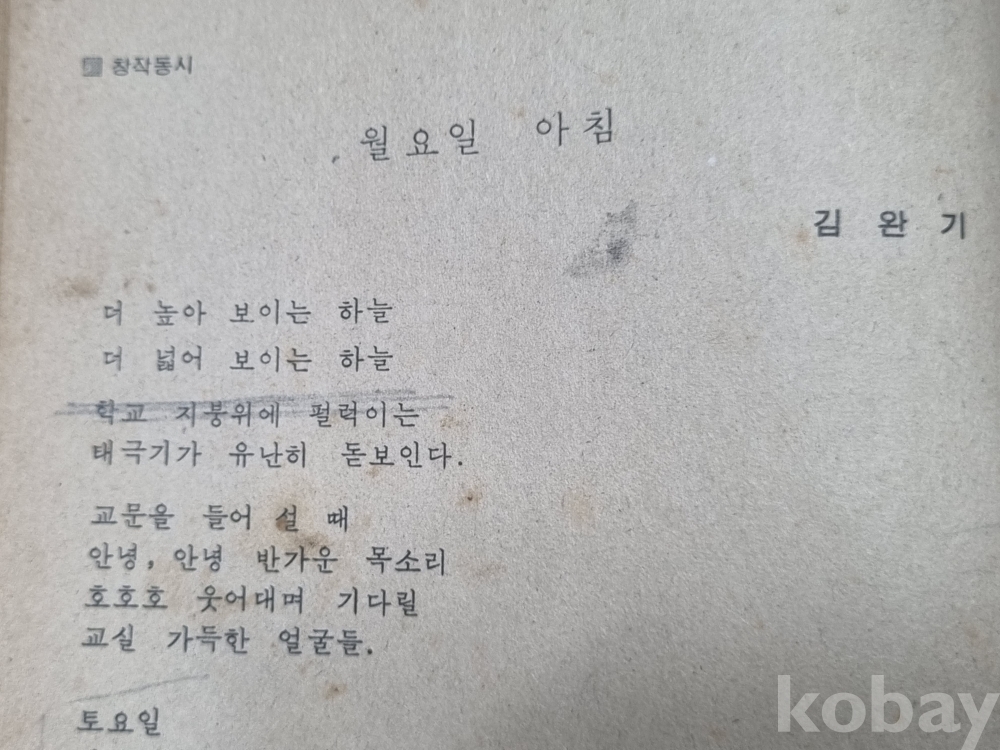 창작동시
월요일 아침
김완기
더 높아 보이는 하늘
더 넓어 보이는 하늘
학교 지붕위에 펄럭이는
태극기가 유난히 돋보인다.
교문을 들어 설 때
안녕, 안녕 반가운 목소리
호호호 웃어대며 기다릴
교실 가득한 얼굴들.
토요일
kobay